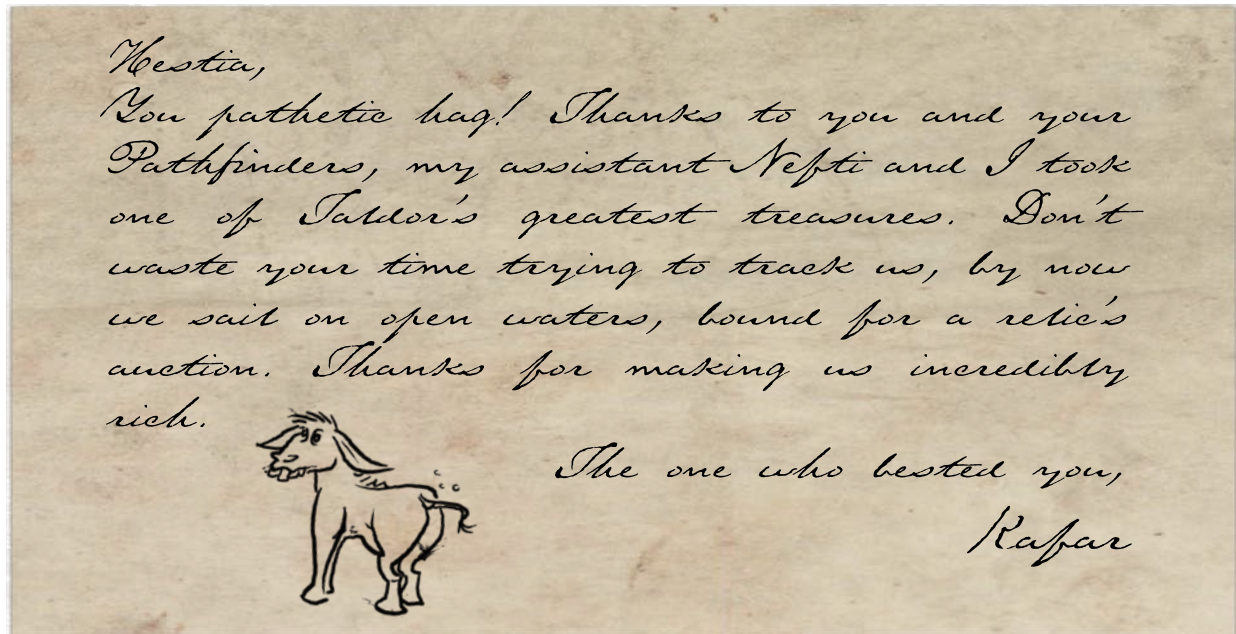 Hestia,
You pathetic hag! Thanks to you and your
Pathfinders, my assistant Nefti and I took
one of Taldor's greatest treasures. Don't
waste your time trying to track us, by now
we sail on open waters, bound for a relic's
auction. Thanks for making us incredibly
rich.
The one who bested you,
Kafar